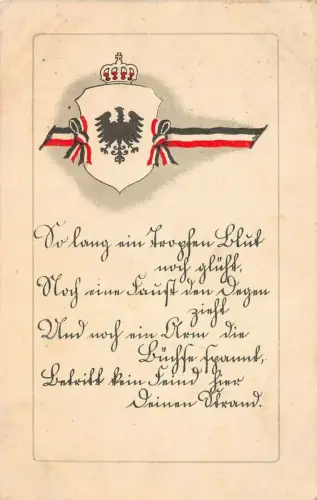 So lang ein Tropfen Blut
noch glüht,
Noch eine Faust den Degen
zieht
Und noch ein Arm die
Büchse spannt,
Betritt kein Feind hier
Deinen Strand.